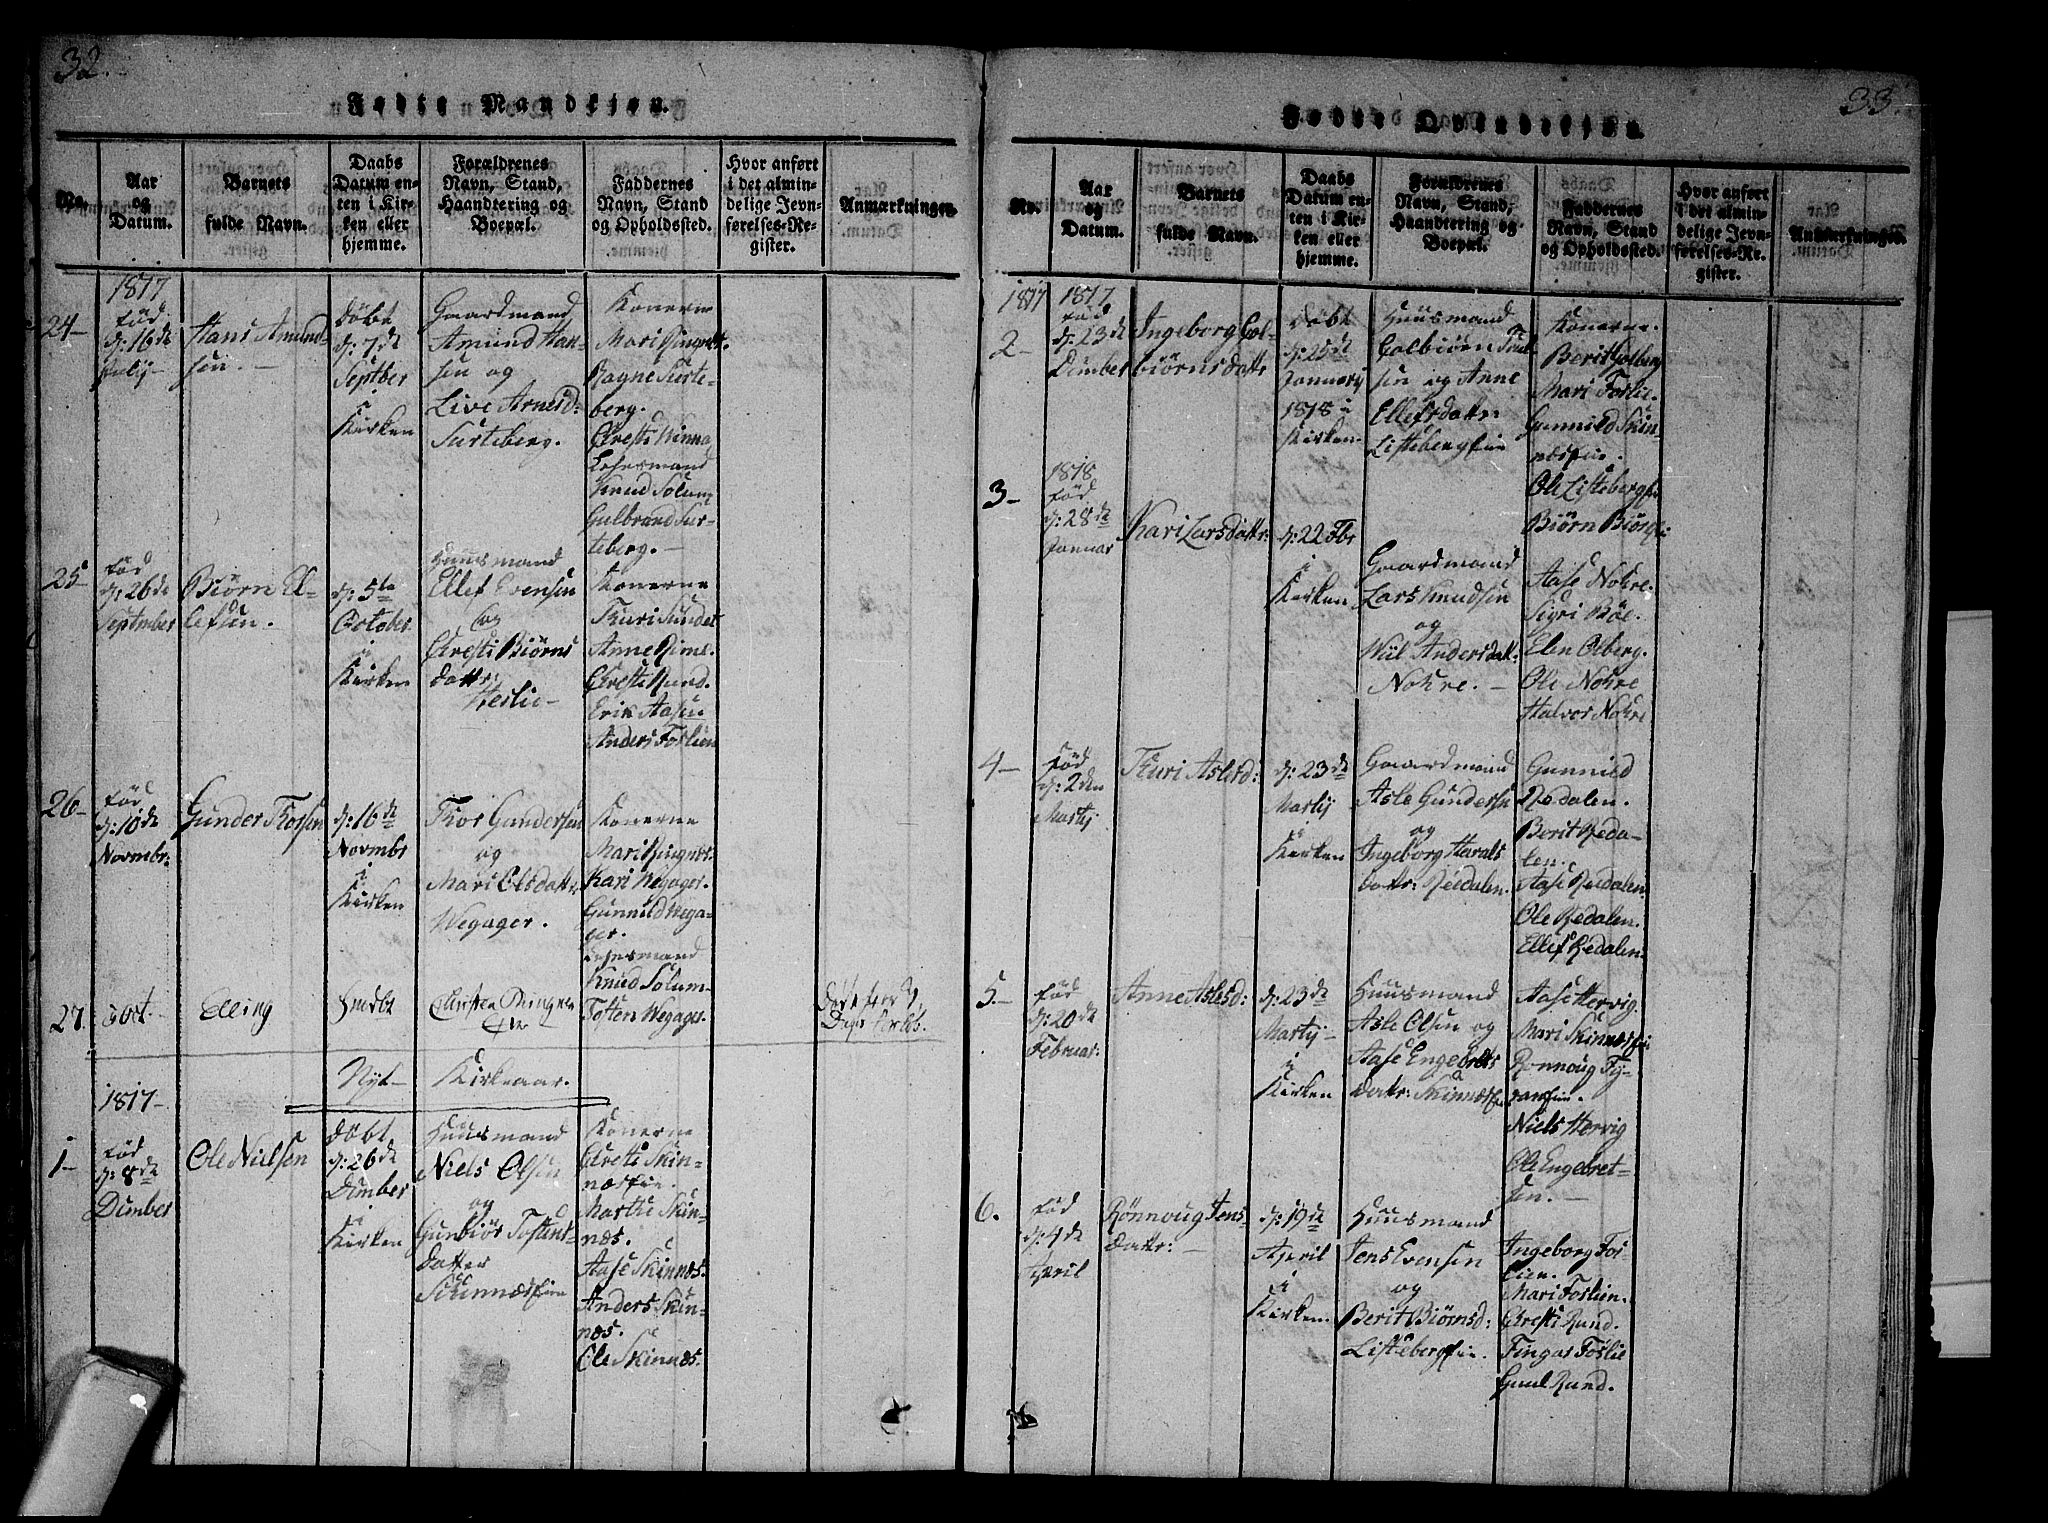 32.
Fødte Mandkiøn.
No.
Aar
og
Datum.
Barnets
fulde Navn.
Daabs
Datum en-
ten i Kir-
ken eller
hjemme.
Forældrenes
Navn, Stand,
Haandtering og
Boepæl.
Faddernes
Navn, Stand
og Opholdssted.
Hvor anført
i det almin-
delige Jevn-
førelses-Re-
gister.
Anmærkninger.
24-
1817
fød
d: 16de
Julij-
Hans Amund-
sen.-
döbt
d: 7de
Septber
i
Kirken
Gaardmand
Amund Han-
sen og
Live Arnesd:
Surteberg.
Konerne
Mari Ringnes.
Ragne Surte-
berg.
Christi Kinna
Lehnsmand
Knud Solum
Gulbrand Sur-
teberg.-
25-
fød
d: 26de
September
Biørn El-
lefsen.
d: 5te
October
i
Kirken
Huusmand
Ellef Evensen
og
Christi Biørns
datter:
Herlie-
Konerne
Thuri Sundet
Anne Rime.
Christi Rund.
Erik Aasen
Anders Foslien
26-
fød
d: 10de
Novmbr:
Gunder Thorsen
d: 16de
Novmbr
i
Kirken
Thor Gundersen
og
Mari Olsdattr:
Wegager.
Konerne
Mari Ringnes.
Kari Wegager.
Gunnild Wega-
ger.
Lehnsmand
Knud Solum-
Tosten Wegager.
27.
3 Oct.
Elling
Christen Ringnes
Nyt- Kirkeaar.
1817-
1-
fød
d: 8de
Dcmber
Ole Nielsen
döbt
d: 26de
Dcmber
i
Kirken
Huusmand
Niels Olsen
og
Gunbiör Tostens-
datter
Skinnæseie
Konerne
Christi Skin-
næseie.
Marthe Skin-
næs.
Aase Skinnæs.
Anders Skin-
næs.
Ole Skinnæs.
33.
Fødte Qvindekiøn.
No.
Aar
og
Datum.
Barnets
fulde Navn.
Daabs
Datum en-
ten i Kir-
ken eller
hjemme.
Forældrenes
Navn, Stand,
Haandtering og
Boepæl.
Faddernes
Navn, Stand
og Opholdssted.
Hvor anført
i det almin-
delige Jevn-
førelses-Re-
gister.
Anmærkninger.
1817
2-
1817
fød
d: 23de
Dcmber
Ingeborg Col-
biørnsdattr
döbt
d: 25de
Januarij
1818 i
Kirken-
Huusmand
Colbiörn Poul-
sen og Anne
Ellefsdattr:
Listebergeie
Konerne.
Berit Golberg
Mari Foslie.
Gunnild Skin-
næseie.
Ole Listebergeie
Biörn Biörge:
3-
1818
fød
d: 28de
Januar
Kari Larsdattr:
d: 22 Fbr
i
Kirken
Gaardmand
Lars Knudsen
og
Wiil Andersdatt:
Nohre.-
Aase Nohre.
Sigri Böe.
Elen Olberg.
Ole Nohre
Halvor Nohre
4-
fød
d: 2den
Martij
Thuri Aslesd:
d: 23de
Martij
i
Kirken
Gaardmand
Asle Gundersen
og
Ingeborg Havals
dattr: Reedalen.
Gunnild
Redalen.
Berit Reda-
len.
Aase Redalen.
Ole Redalen.
Ellef Redalen.
5-
fød
d: 20de
Februar:
Anne Aslesd:
d: 23de
Martij-
i
Kirken
Huusmand
Asle Olsen og
Aase Engebrets
dattr: Skinnæseie
Aase Hervig.
Mari Skinnæseie
Ronnoug Fy-
raneie.
Niels Hervig
Ole Engebret-
sen.-
6.
fød
d: 4de
April
Rönnoug Jens-
dattr:-
d: 19de
April
i
Kirken.
Huusmand
Jens Evensen
og
Berit Biörnsd:
Listebergeie.
Ingeborg Fos-
lien.
Mari Foslien.
Christi Rund.
Fingar Foslie
Guul Rund.